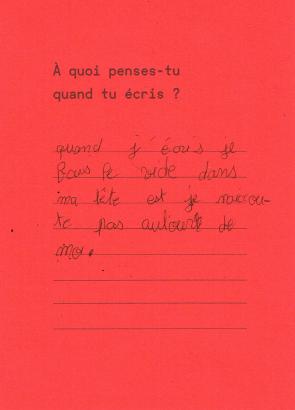 À quoi penses-tu
quand tu écris ?
quand j'écris je
fais le vide dans
ma tête est je
pas autour de
moi.